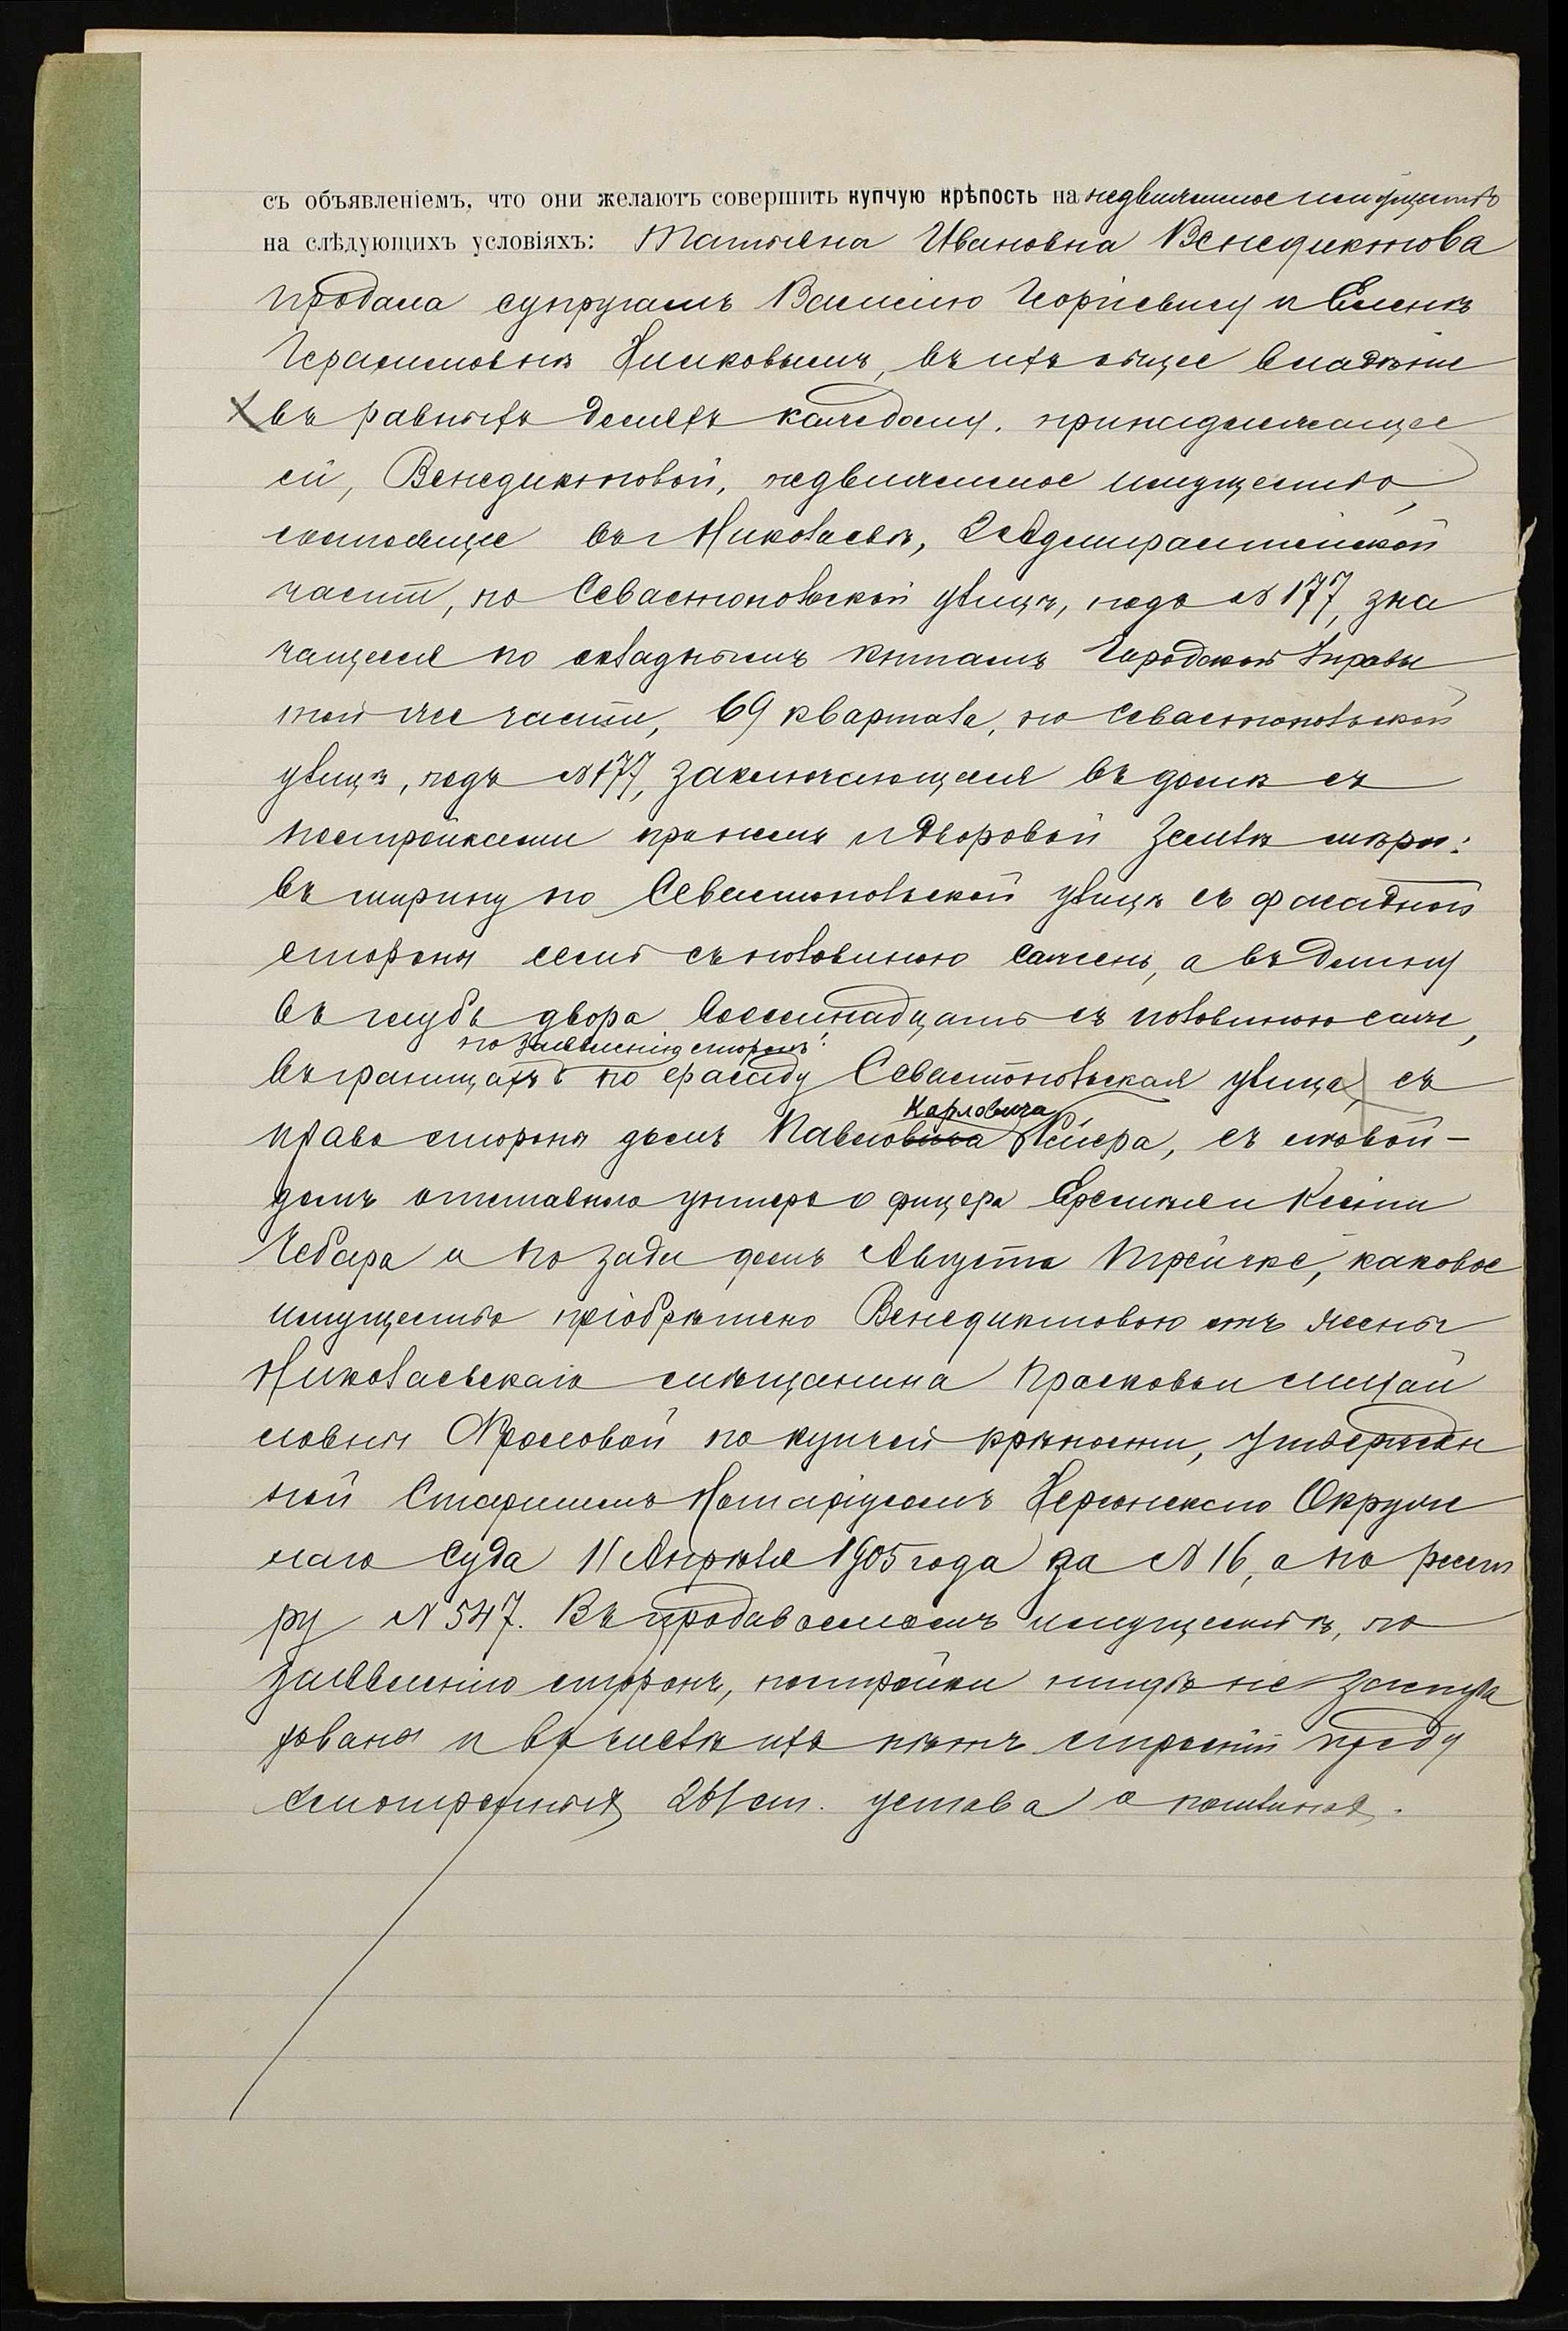 съ объявленіемъ, что они желаютъ совершить купчую крѣпость на недвижимое имущество
на слѣдующихъ условіяхъ: Татьяна Ивановна Венедиктова
продала супругамъ Василію Георгіевичу и Еленѣ
Герасимовнѣ Климковымъ, въ ихъ общее владѣніе
въ равныхъ доляхъ каждому, принадлежащее
ей, Венедиктовой, недвижимое имущество,
состоящее въ г Николаевѣ, 2 Адмиралтейской
части, по Севастопольской улицѣ, подъ № 177, зна
чащееся по окладнымъ книгамъ Городской Управы
той же части, 69 квартала, по Севастопольской
улицѣ, подъ № 177, заключающееся въ домѣ съ
постройками при немъ и дворовой землѣ мѣрою:
въ ширину по Севастопольской улицѣ съ фасадной
стороны семь съ половиною сажень, а въ длину
въ глубь двора восемнадцать съ половиною саж,
по заявленію сторонъ:
въ границахъ по фасаду Севастопольская улица, съ
Карловича
право стороны домъ Павловича Рейера, съ лѣвой -
домъ отставного унтеръ офицера Еремѣя и Ксеніи
Чебара и по зади домъ Августа Трейчке, каковое
имущество пріобрѣтено Венедиктовою отъ жены
Николаевскаго мѣщанина Прасковьи Михай
ловны Фроловой по купчей крѣпости, утвержден
ной Старшимъ Нотаріусомъ Херсонскаго Окруж
наго Суда 11 Апрѣля 1905 года за № 16, а по реест
ру № 547. Въ продаваемомъ имуществѣ, по
заявленію сторонъ, постройки нигдѣ не застра
хованы и въ числѣ ихъ нѣтъ строеній преду
смотренныхъ 261 ст. устава о пошлинах.